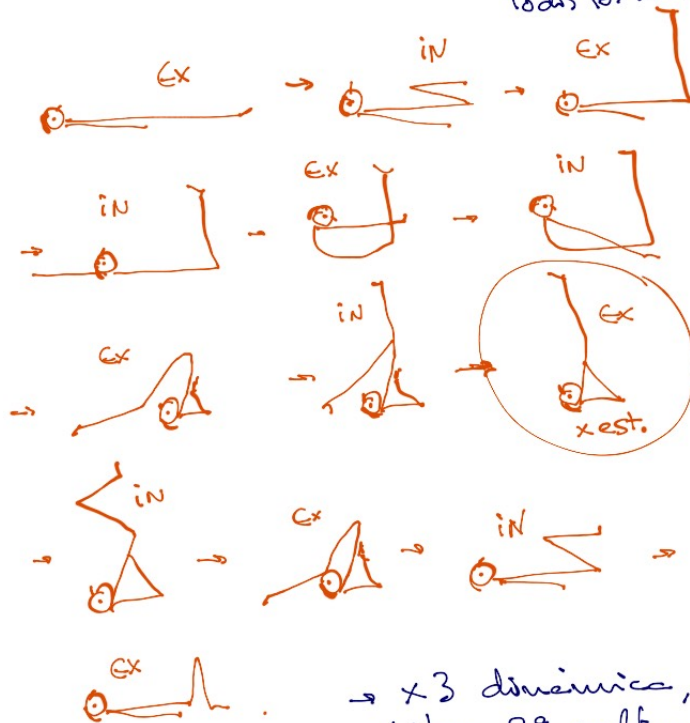 Ex → iN → Ex
→ iN - Ex → iN
→ Ex → iN → Ex
x est.
→ iN → Ex → iN →
Ex . → x3 dinámica,